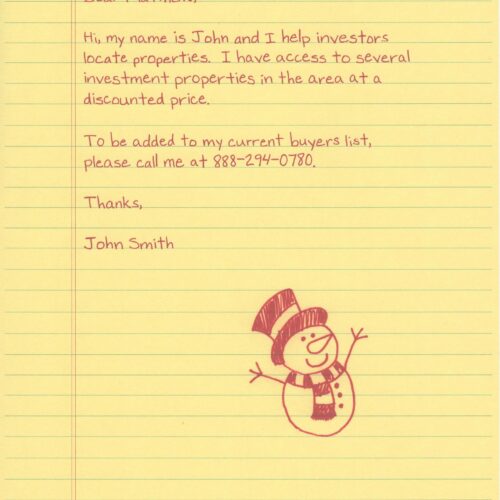 Hi, my name is John and I help investors
locate properties. I have access to several
investment properties in the area at a
discounted price.
To be added to my current buyers list,
please call me at 888-294-0780.
Thanks,
John Smith